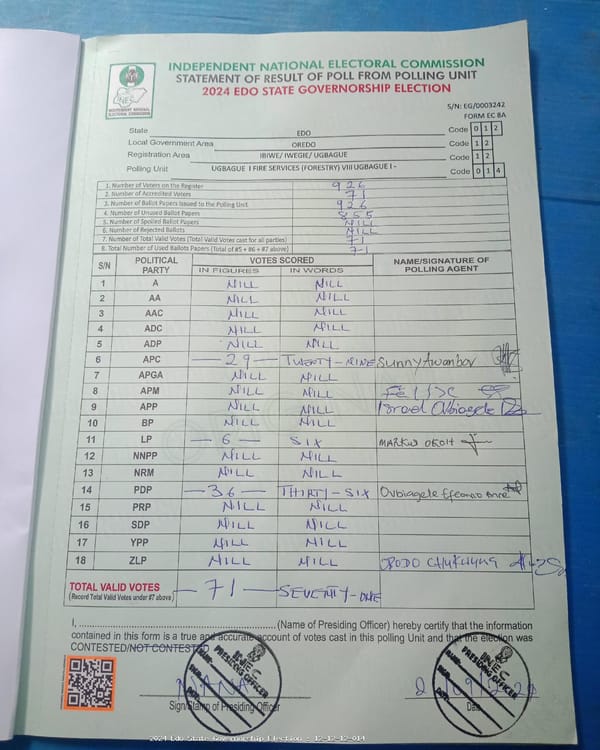 INDEPENDENT NATIONAL ELECTORAL COMMISSION
STATEMENT OF RESULT OF POLL FROM POLLING UNIT
2024 EDO STATE GOVERNORSHIP ELECTION
S/N: EG/0003242
FORM EC 8A
State EDO Code 0 1 2
Local Government Area OREDO Code 1 2
Registration Area IBIWE/ IWEGIE/ UGBAGUE Code 1 2
Polling Unit UGBAGUE I FIRE SERVICES (FORESTRY) VIII UGBAGUE I - Code 0 1 4
1. Number of Voters on the Register 926
2. Number of Accredited Voters 71
3. Number of Ballot Papers Issued to the Polling Unit 926
4. Number of Unused Ballot Papers 855
5. Number of Spoiled Ballot Papers NILL
6. Number of Rejected Ballots NILL
7. Number of Total Valid Votes (Total Valid Votes cast for all parties) 71
8. Total Number of Used Ballots Papers (Total of #5 + #6 + #7 above) 71
S/N POLITICAL PARTY VOTES SCORED NAME/SIGNATURE OF POLLING AGENT
IN FIGURES IN WORDS
1 A NILL NILL
2 AA NILL NILL
3 AAC NILL NILL
4 ADC NILL NILL
5 ADP NILL NILL
6 APC — 29 — TWENTY-NINE Sunny
7 APGA NILL NILL
8 APM NILL NILL
9 APP NILL NILL Israel
10 BP NILL NILL
11 LP — 6 — SIX
12 NNPP NILL NILL
13 NRM NILL NILL
14 PDP — 36 — THIRTY-SIX Ovbiagele
15 PRP NILL NILL
16 SDP NILL NILL
17 YPP NILL NILL
18 ZLP NILL NILL
TOTAL VALID VOTES — 71 — SEVENTY-ONE
(Record Total Valid Votes under #7 above)
I, ........................(Name of Presiding Officer) hereby certify that the information
contained in this form is a true and accurate account of votes cast in this polling Unit and that the election was
CONTESTED/NOT CONTESTED
INEC
PRESIDING OFFICER
INEC
PRESIDING OFFICER
Sign/Stamp of Presiding Officer
Date
2024 Edo State Governorship Election - 12-12-12-014